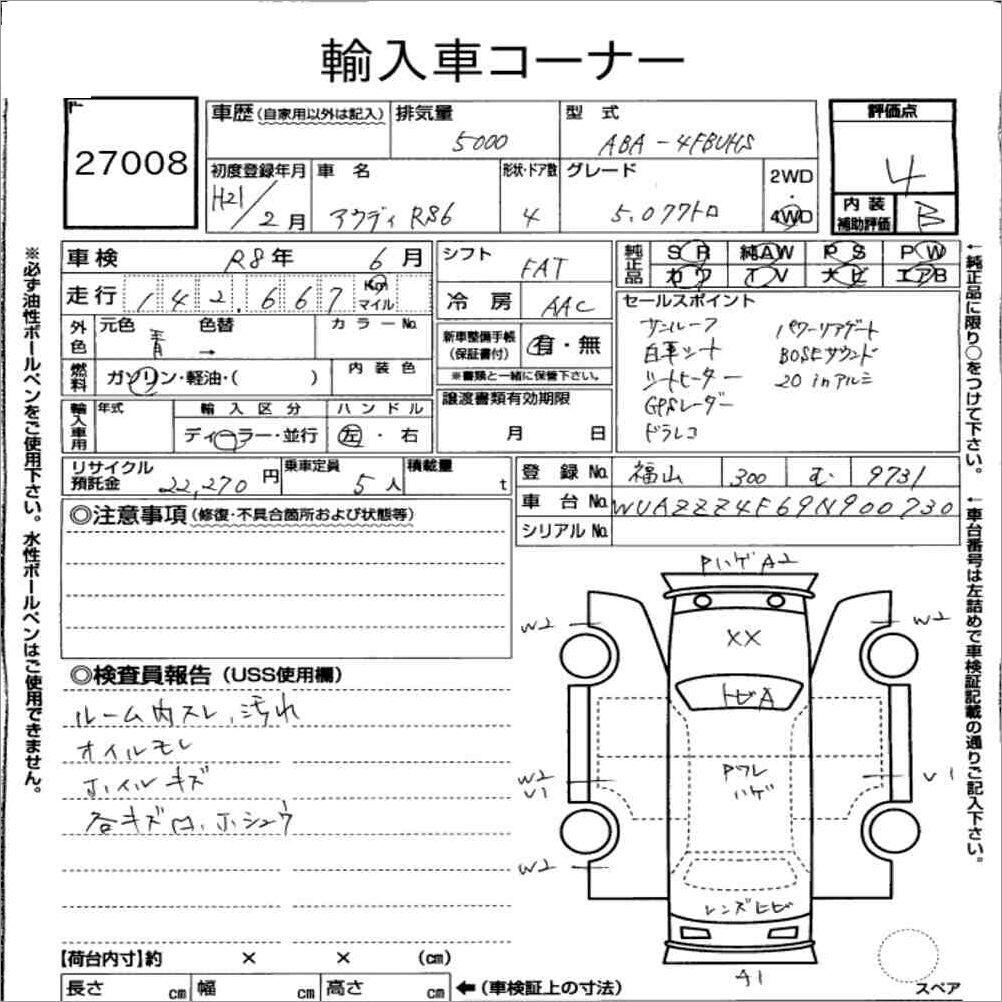 輸入車コーナー
27008
車歴(自家用以外は記入) 排気量 5000 型式 ABA-4FBUHS 評価点 4
初度登録年月 H21/2月 車名 アウディ RS6 形状・ドア数 4 グレード 5.0クワトロ 2WD・4WD
内装補助評価 B
車検 R8年 6月 シフト FAT 純正品 SR 純AW PS PW
カワ TV ナビ エアB
走行 142,667 Km マイル 冷房 AAC
外色 元色 青 色替 → カラーNo.
新車整備手帳(保証書付) 有・無
※書類と一緒に保管下さい。
燃料 ガソリン・軽油・( ) 内装色
セールスポイント
サンルーフ パワーリアゲート
白革シート BOSEサウンド
シートヒーター 20inアルミ
GPSレーダー
ドラレコ
輸入車用 年式 輸入区分 ディーラー・並行 ハンドル 左・右
譲渡書類有効期限 月 日
リサイクル預託金 22,270円 乗車定員 5人 積載量 t
登録No. 福山 300 む 9731
車台No. WUAZZZ4F69N900730
シリアルNo.
◎注意事項(修復・不具合箇所および状態等)
◎検査員報告(USS使用欄)
ルーム内スレ、汚れ
オイルモレ
ホイルキズ
各キズ凹、ホシュウ
PハゲA2
W2 W2
XX
トビA
W2 PワレハゲV1
V1
W2
レンズヒビ
A1
スペア
【荷台内寸】約 × × (cm)
長さ cm 幅 cm 高さ cm ←(車検証上の寸法)
※必ず油性ボールペンをご使用下さい。水性ボールペンはご使用できません。
←純正品に限り○をつけて下さい。
←車台番号は左詰めで車検証記載の通りご記入下さい。